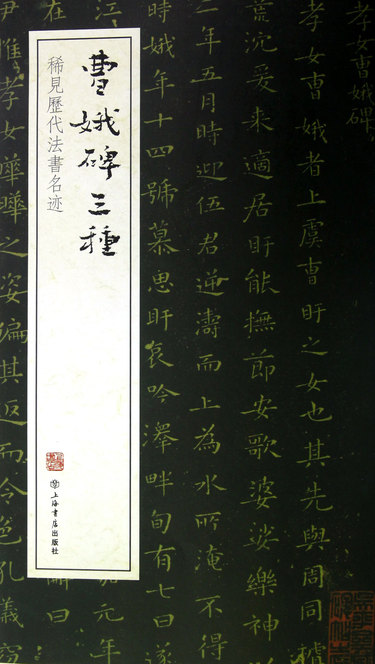 孝女曹娥碑
孝女曹娥者上虞曹盱之女也其先與周同
荒沉爰来適居盱能撫節安歌婆娑樂神以
二年五月時迎伍君逆濤而上為水所淹不得
時娥年十四號慕思盱哀吟澤畔旬有七日遂
元年
曹娥碑三種
稀見歷代法書名迹
上海書店出版社
在
曰
尹惟孝女曄曄之姿偏其返而令色孔義窈